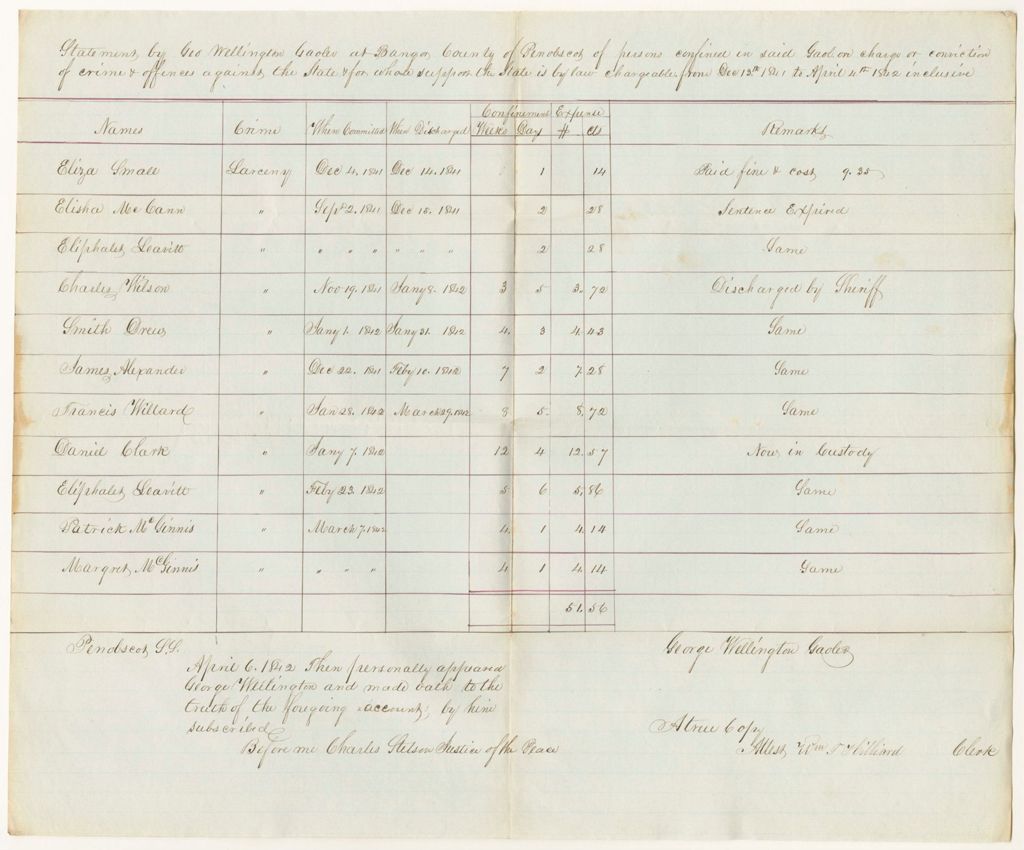 Statement by Geo Wellington Gaoler at Bangor, County of Penobscot of persons confined in said Gaol on charge or conviction
of crime & offences against the State & for whose support the State is by law chargeable from Dec 13th 1841 to April 4th 1842 inclusive
Names Crime When Committed When Discharged Confinement Expense Remarks
Weeks Day # cts
Eliza Small Larceny Dec 4. 1841 Dec 14. 1841 1 14 Paid fine & cost 9.35
Elisha McCann " Sept 2. 1841 Dec 15. 1841 2 28 Sentence Expired
Eliphalet Leavitt " " " " " " " 2 28 Same
Charles Wilson " Nov 19. 1841 Jany 8. 1842 3 5 3.72 Discharged by Sheriff
Smith Drew " Jany 1. 1842 Jany 31. 1842 4. 3 4.43 Same
James Alexander " Dec 22. 1841 Feby 10. 1842 7 2 7.28 Same
Francis Willard " Jan 28. 1842 March 29. 1842 8 5 8.72 Same
Daniel Clark " Jany 7. 1842 12 4 12.57 Now in Custody
Eliphalet Leavitt " Feby 23. 1842 5 6 5.86 Same
Patrick McGinnis " March 7. 1842 4. 1 4.14 Same
Margret McGinnis " " " " 4 1 4.14 Same
51.56
Penobscot S.S. George Wellington Gaoler
April 6. 1842 Then personally appeared
George Wellington and made oath to the
truth of the foregoing account, by him
subscribed
Before me Charles Stetson Justice of the Peace
A true Copy
Attest Wm T Hilliard Clerk